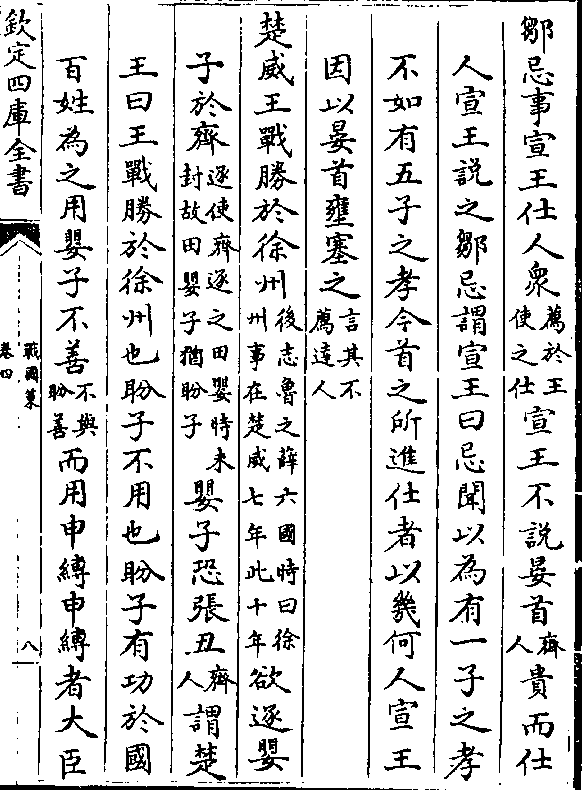 鄒忌事宣王仕人衆薦於王使之仕宣王不説晏首齊人貴而仕
人寡宣王説之鄒忌謂宣王曰忌聞以為有一子之孝
不如有五子之孝今首之所進仕者以幾何人宣王
因以晏首壅塞之言其不薦達人
楚威王戰勝於徐州後志魯之薛六國時曰徐州事在楚威七年此十年欲逐嬰
子於齊逐使齊逐之田嬰時未封故田嬰子猶盼子嬰子恐張丑齊人謂楚
王曰王戰勝於徐州也盼子不用也盼子有功於國
百姓為之用嬰子不善不與盼善而用申縛申縛者大臣
欽定四庫全書
戰國策
卷四
八